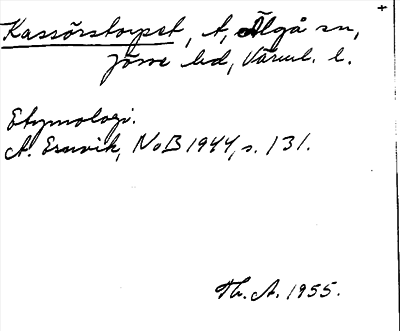 Kassörstorpet, t, Älgå sn,
Jösse hd, Värml. l.
Etymologi.
A. Ernvik, NoB 1944, s. 131.
Th. A. 1955.